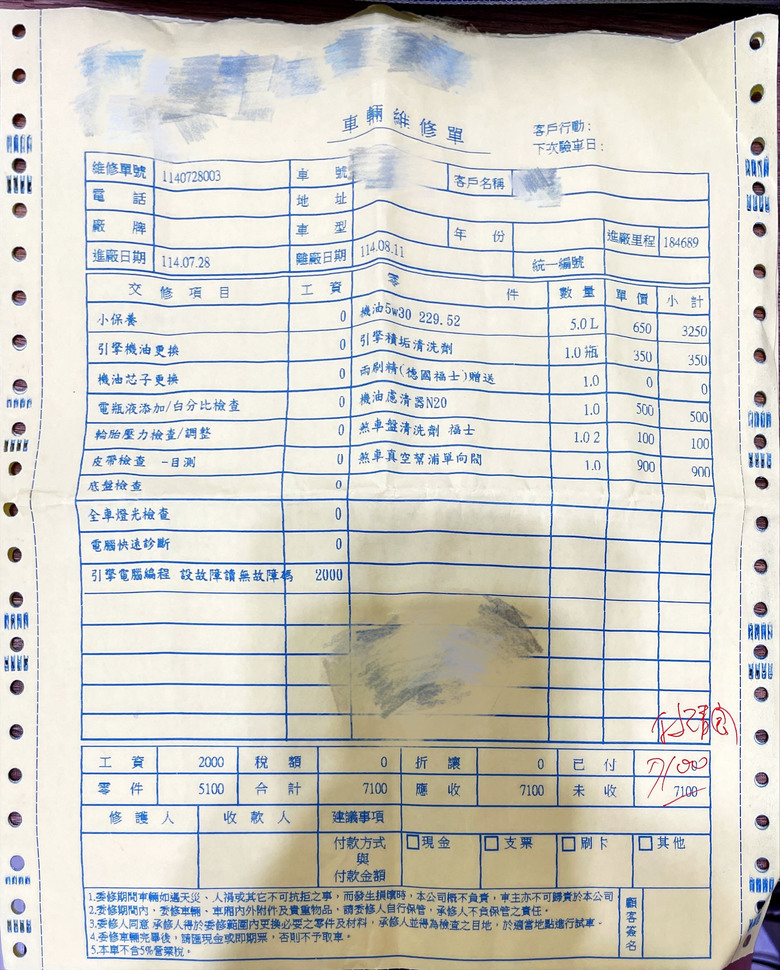 車輛維修單
客戶行動:
下次驗車日:
維修單號 1140728003 車號 客戶名稱
電話 地址
廠牌 車型 年份 進廠里程 184689
進廠日期 114.07.28 離廠日期 114.08.11 統一編號
交修項目 工資 零件 數量 單價 小計
小保養 0 機油5w30 229.52 5.0 L 650 3250
引擎機油更換 0 引擎積垢清洗劑 1.0 瓶 350 350
機油芯子更換 0 雨刷精(德國福士)贈送 1.0 0 0
電瓶液添加/白分比檢查 0 機油慮清器N20 1.0 500 500
輪胎壓力檢查/調整 0 煞車盤清洗劑 福士 1.0 2 100 100
皮帶檢查 -目測 0 煞車真空幫浦單向閥 1.0 900 900
底盤檢查 0
全車燈光檢查 0
電腦快速診斷 0
引擎電腦編程 設故障讀無故障碼 2000
工資 2000 稅額 0 折讓 0 已付 0
零件 5100 合計 7100 應收 7100 未收 7100
修護人 收款人 建議事項
付款方式與付款金額 現金 支票 刷卡 其他
1.委修期間車輛如遇天災、人禍或其它不可抗拒之事,而發生損壞時,本公司概不負責,車主亦不可歸責於本公司。
2.委修期間內,委修車輛、車廂內外附件及貴重物品,請委修人自行保管,承修人不負保管之責任。
3.委修人同意 承修人得於委修範圍內更換必要之零件及材料,承修人並得為檢查之目地,於適當地點進行試車。
4.委修車輛完畢後,請匯現金或即期票,否則不予取車。
5.本車不含5%營業稅。
顧客簽名